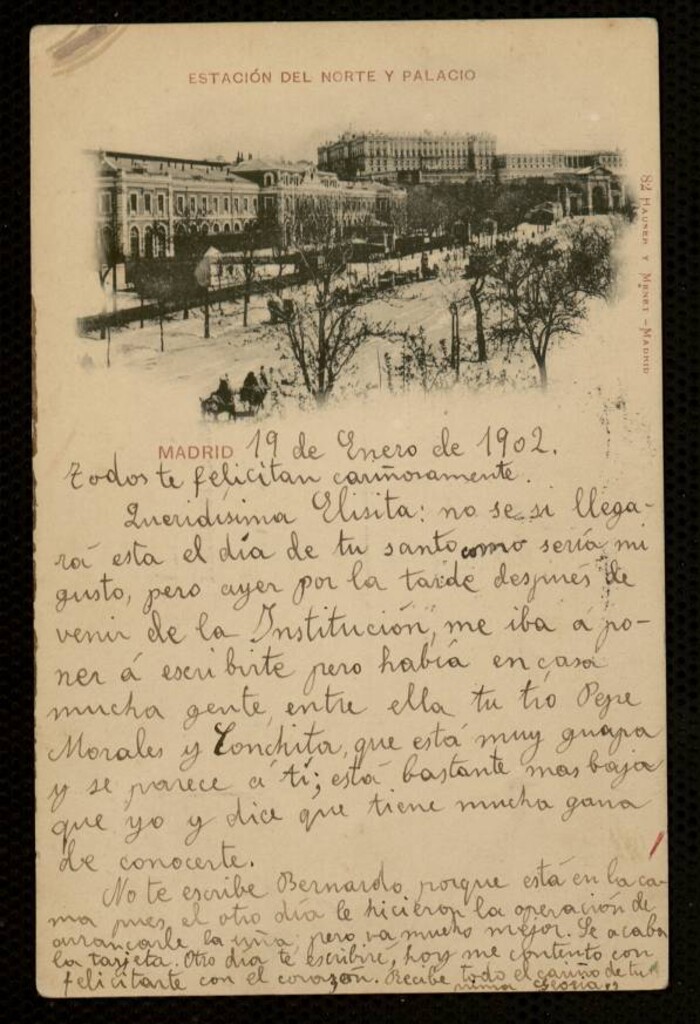 ESTACIÓN DEL NORTE Y PALACIO
82 HAUSER Y MENET - MADRID
MADRID 19 de Enero de 1902.
todos te felicitan cariñosamente.
Queridísima Elisita: no se si llega-
rá esta el día de tu santo como sería mi
gusto, pero ayer por la tarde despues de
venir de la Institución, me iba á po-
ner á escribirte pero había en casa
mucha gente, entre ella tu tío Pepe
Morales y Conchita, que está muy guapa
y se parece á tí; está bastante mas baja
que yo y dice que tiene mucha gana
de conocerte.
No te escribe Bernardo, porque está en la ca-
ma pues el otro día le hicieron la operación de
arrancarle la uña, pero va mucho mejor. Se acaba
la tarjeta. Otro día te escribiré, hoy me contento con
felicitarte con el corazón. Recibe todo el cariño de tu